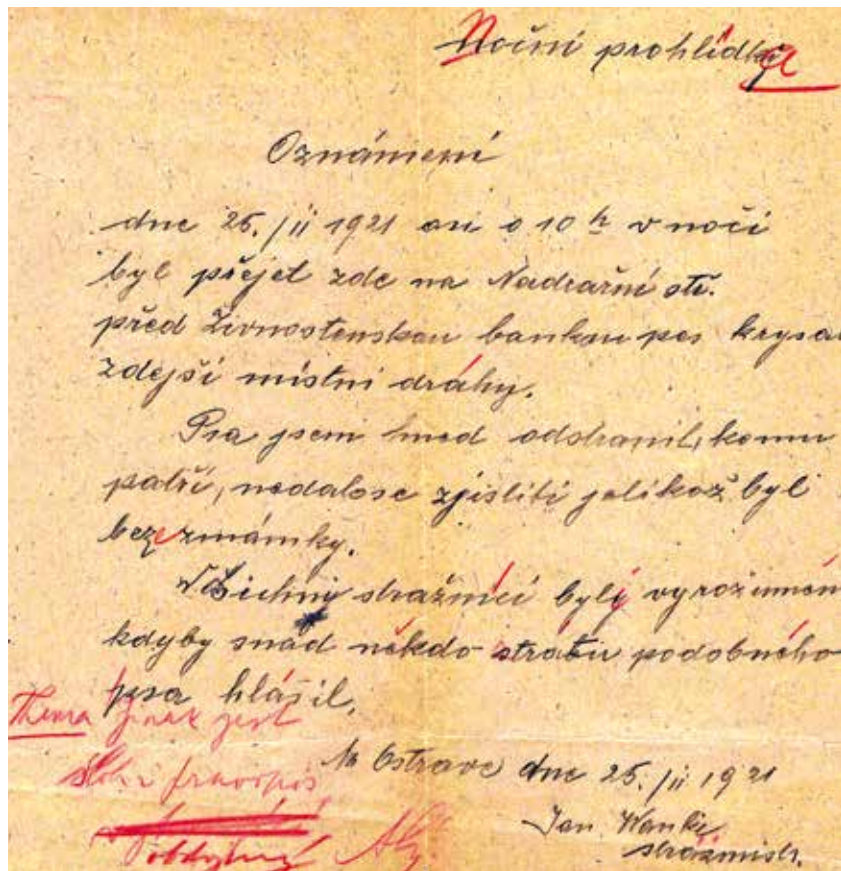 Noční prohlídka
Oznámení
dne 25./II 1921 asi o 10 h v noči
byl přejet zde na Nadražní stř.
před Živnostenskou bankou pes krysa
zdejší místní dráhy.
Psa jsem hned odstranil, komu
patří, nedalose zjistiti jelikož byl
beze známky.
Všichni strážníci byli vyrozuměn
kdyby snad někdo ztrátu podobného
psa hlásil.
Thema jinak jest
pravopis
M Ostrava dne 25./II 1921
Jan
strážmistr.